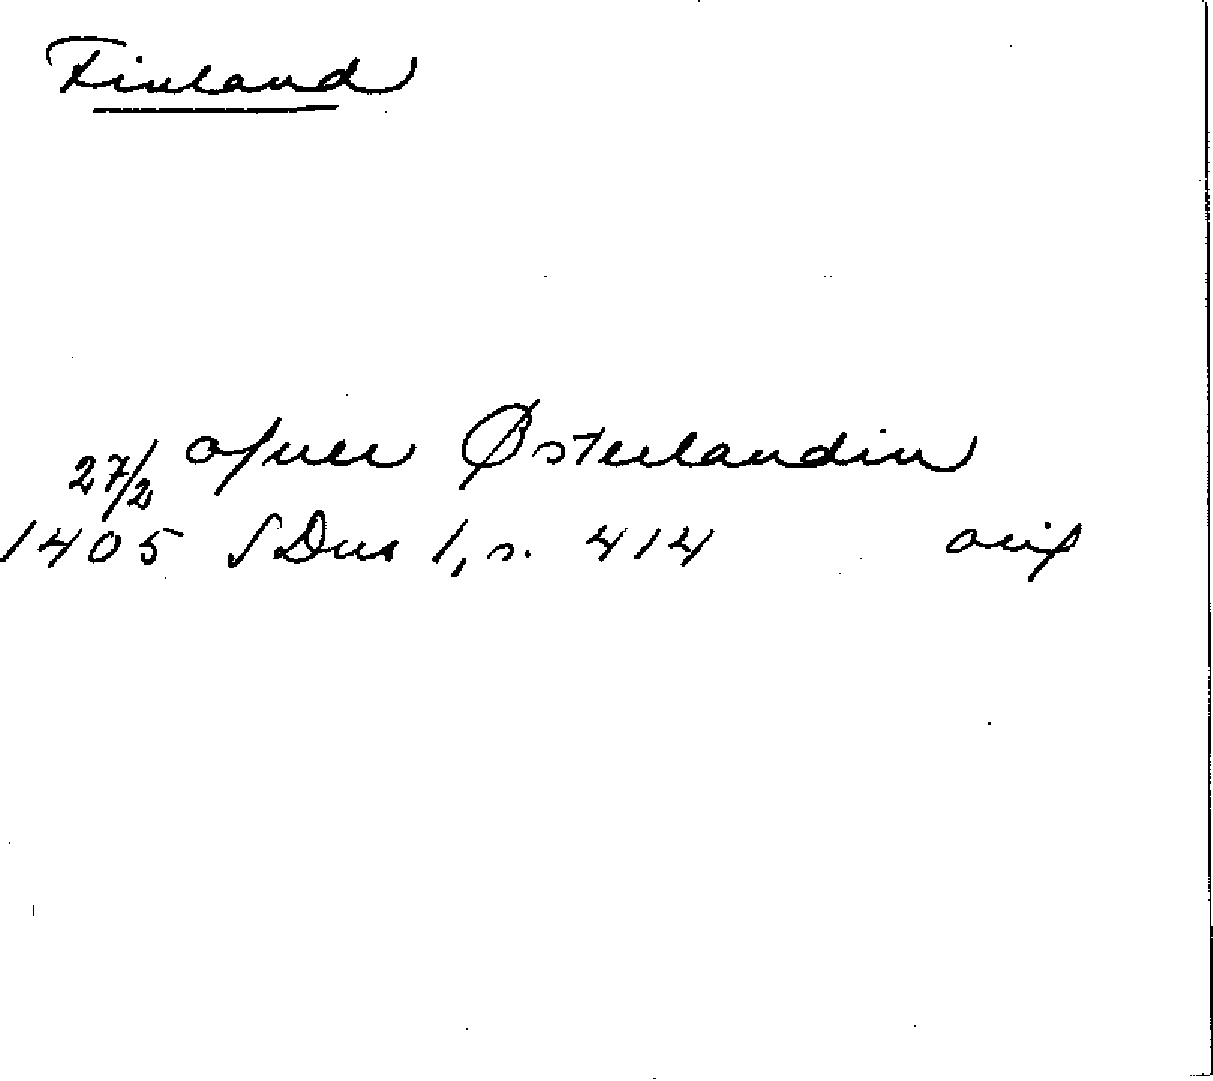 Finland
27/2 afuer Østerlandin
1405 SDns 1, s. 414 orig